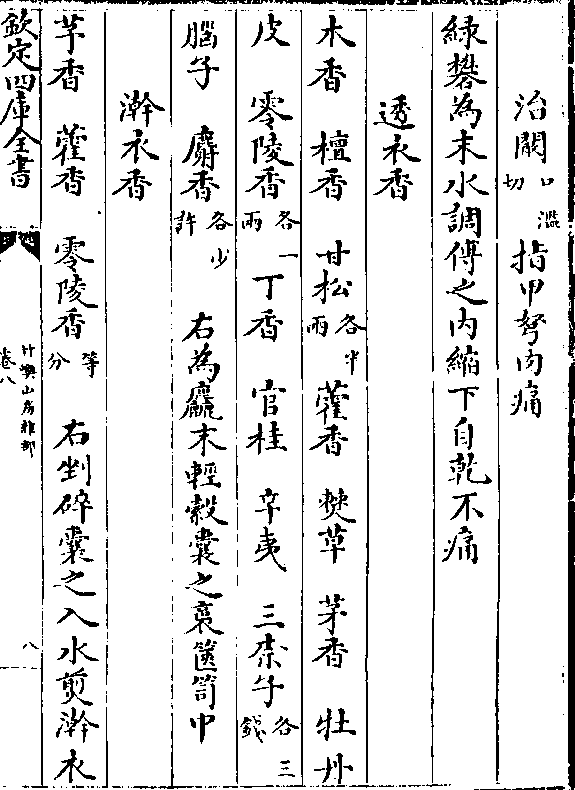 治闞口濫切指甲弩肉痛
緑礬為末水調傅之内縮下自乾不痛
透衣香
木香 檀香 甘松各半兩 藿香 草 茅香 牡丹
皮 零陵香各一兩 丁香 官桂 辛夷 三柰子各三錢
腦子 麝香各少許 右為麤末輕縠囊之裛篋笥中
澣衣香
芋香 藿香 零陵香等分 右剉碎囊之入水煎澣衣
欽定四庫全書 竹嶼山房雜部 卷八 八